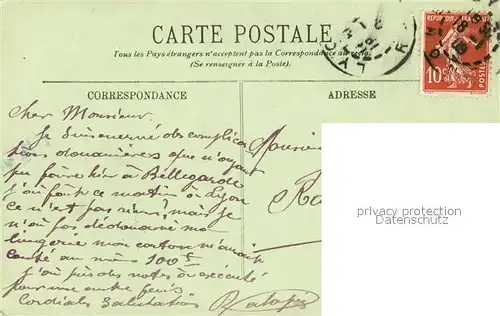 CARTE POSTALE
Tous les Pays étrangers n'acceptent pas la Correspondance au recto
(Se renseigner à la Poste).
CORRESPONDANCE
ADRESSE
10c
POSTES
Cher Monsieur
Je suis énervé des complica
tions douanières que n'ayant
pu faire hier à Bellegarde
j'ai faite ce matin à Lyon
ce n'est pas rien mais je
n'ai pas dédouané ma
lingerie mon carton m'aurait
coûté au moins 100 f
J'ai pris des notes
pour une autre fois
Cordiales Salutations
Monsieur
privacy protection
Datenschutz